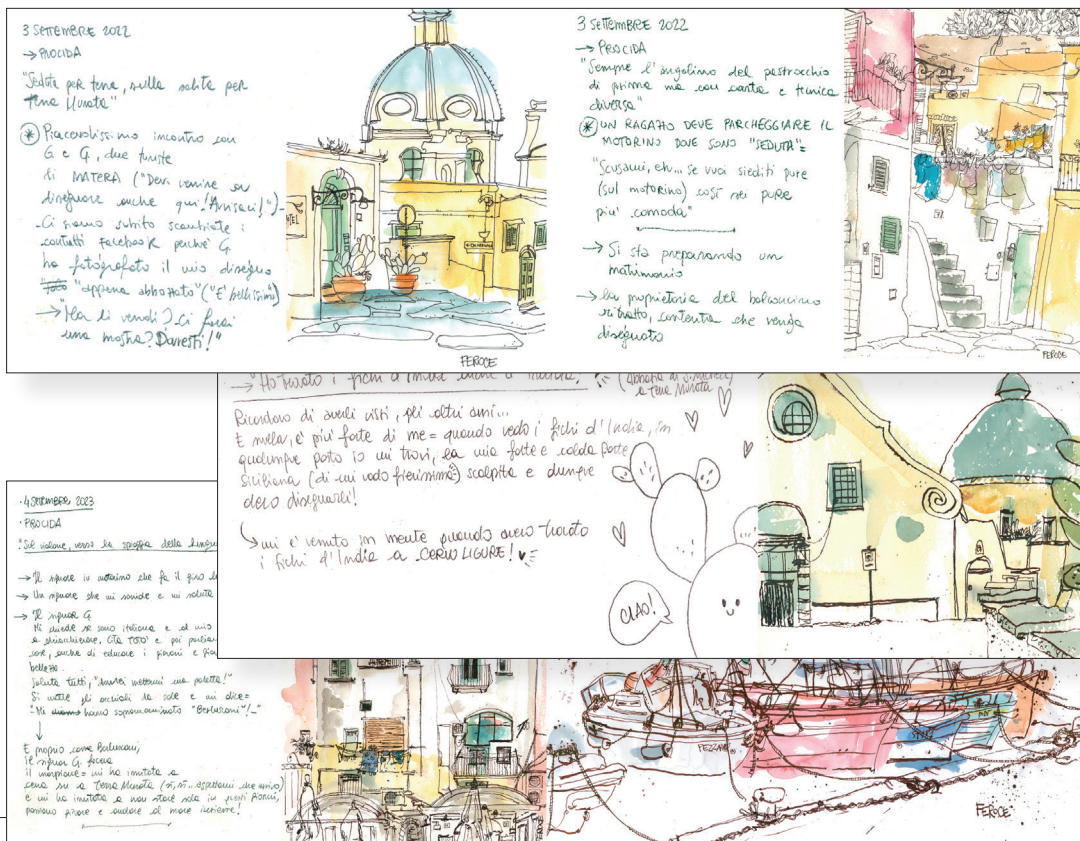 3 SETTEMBRE 2022
→ PROCIDA
"Seduta per terra, sulla salita per
Terra Murata"
* Piacevolissimo incontro con
G e G, due turiste
di MATERA ("Devi venire a
disegnare anche qui! Avvisaci!")
Ci siamo subito scambiate i
contatti Facebook perché G
ha fotografato il mio disegno
"appena abbozzato" ("E' bellissimo")
→ "Ma li vendi? Ci farai
una mostra? Dovresti!"
HOTEL
FEROCE
3 SETTEMBRE 2022
→ PROCIDA
"Sempre l'angolino del pastrocchio
di prima ma con carta e tecnica
diversa"
* UN RAGAZZO DEVE PARCHEGGIARE IL
MOTORINO DOVE SONO "SEDUTA"=
"Scusami, eh... se vuoi siediti pure
(sul motorino) così sei pure
più comoda"
→ Si sta preparando un
matrimonio
→ La proprietaria del balconcino
ritratto, contenta che venga
disegnato
FEROCE
→ "Ho trovato i fichi d'India anche a
(Abbazia di S. Michele)
a Terra Murata
Ricordavo di averli visti, gli altri anni...
E nulla, e' piu' forte di me = quando vedo i fichi d'India, in
qualunque posto io mi trovi, la mia forte e calda parte
Siciliana (di cui vado fierissima) scalpita e dunque
devo disegnarli!
mi e' venuto in mente quando avevo trovato
i fichi d'India a CERVO LIGURE!
CIAO!
· 4 SETTEMBRE 2023
· PROCIDA
"Sul vialone, verso la spiaggia della
→ Il signore in motorino che fa il giro
→ Un signore che mi sorride e mi saluta
→ Il signor G.
Mi chiede se sono italiana e al mio
a chiacchierare. Cita TOTO' e poi
cose, anche di educare i giovani e
bellezza.
Saluta tutti, "dovrei mettermi una paletta!"
Si mette gli occhiali da sole e mi dice=
"Mi hanno soprannominato "Berlusconi"!"
E proprio come Berlusconi,
il signor G. faceva
il marpione= mi ha invitata a
cena su a Terra Murata (sì, sì... aspettami che arrivo)
e mi ha invitata a non stare sola in questi giorni,
possiamo girare e andare al mare insieme!
FEROCE